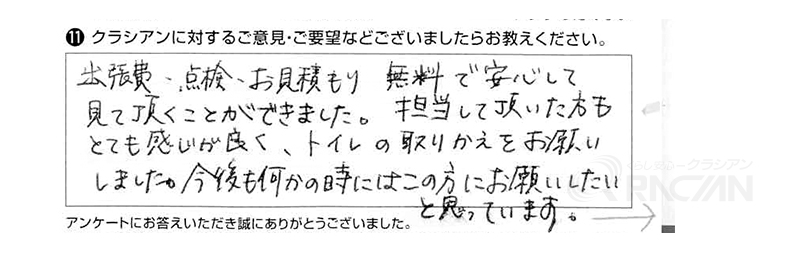 ⓫ クラシアンに対するご意見・ご要望などございましたらお教えください。
出張費・点検・お見積もり 無料で安心して
見て頂くことができました。担当して頂いた方も
とても感じが良く、トイレの取りかえをお願い
しました。今後も何かの時にはこの方にお願いしたい
と思っています。
アンケートにお答えいただき誠にありがとうございました。
クラシアン